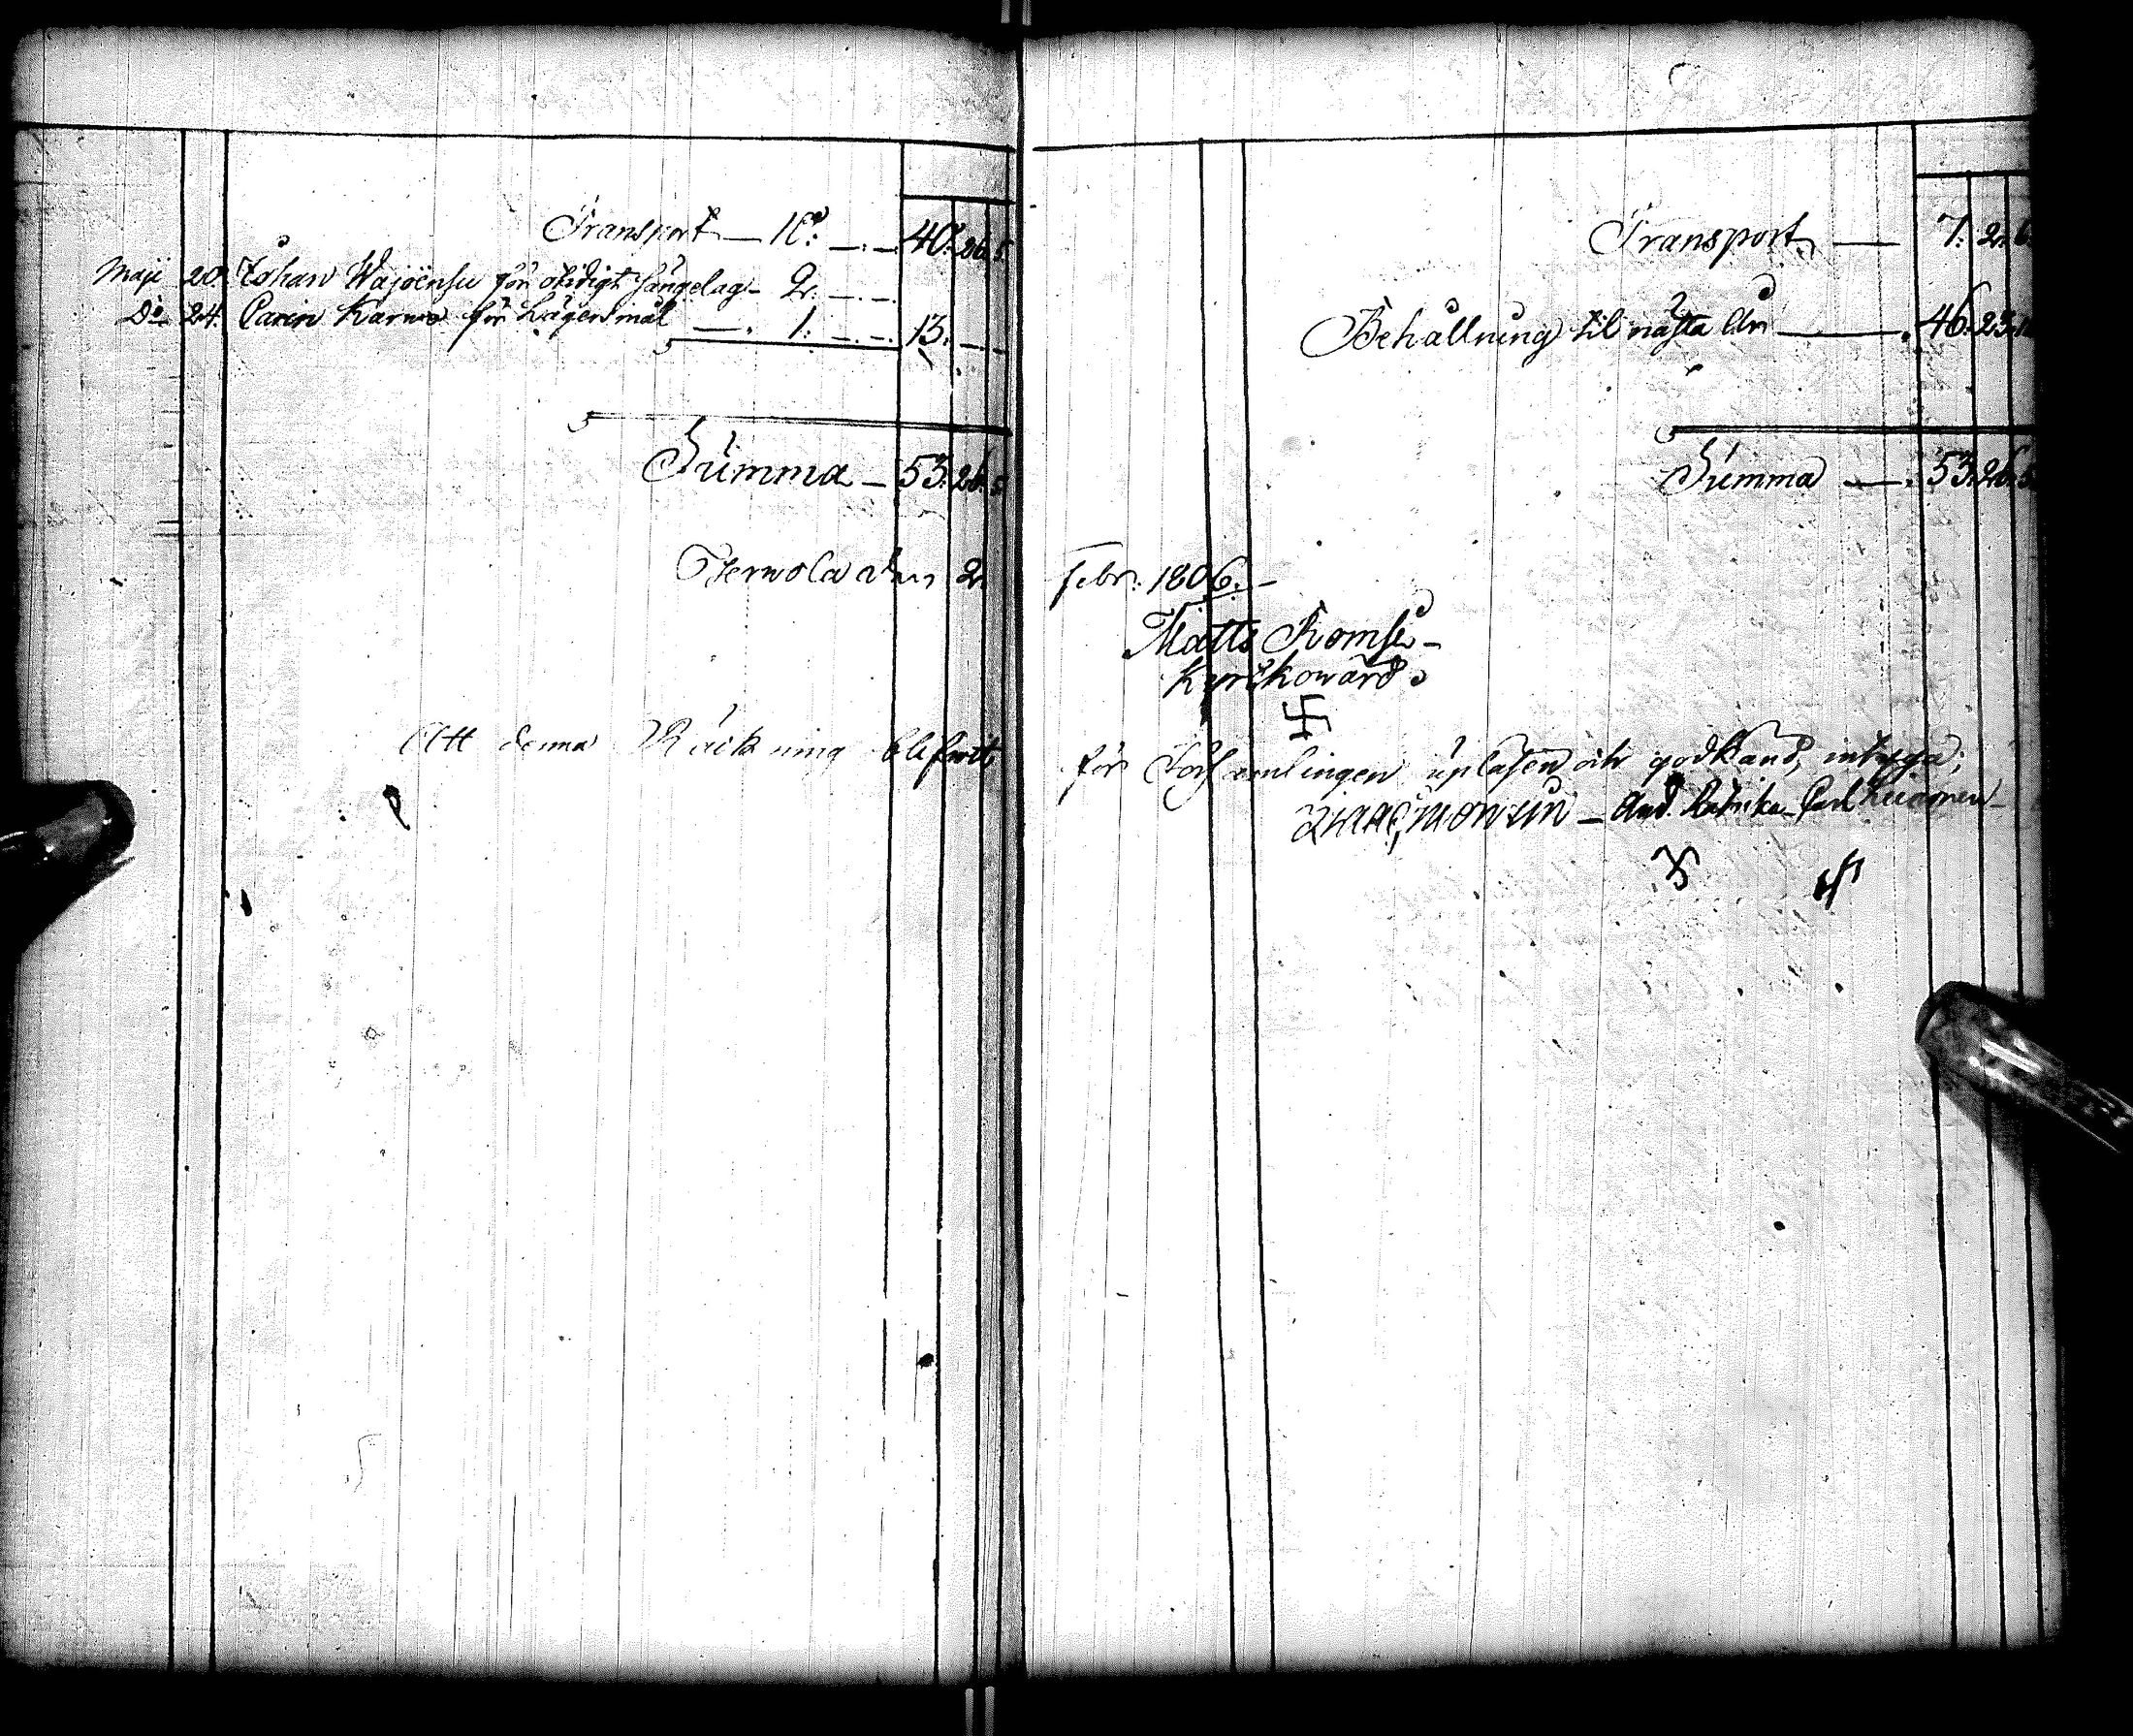 Transport — 10: — . — 40: 26. 5.
Maji 20. Johan Wajoensu för otidigt sängelag — 2. — . —
Do 24. Carin Karwo för Lägersmål — . 1. — . — . 13. — . —
Summa — 53. 26. 5.
Terwola den 2
Att denna Räkning blifwit
Transport — 7: 2. 6.
Behållning til nästa År — . 46. 23.
Summa — . 53. 26. 5
Febr. 1806. —
Matts Romsi —
Kyrckowärd.
för Församlingen upläsen och godkänd, intyga;
— And. — Carl